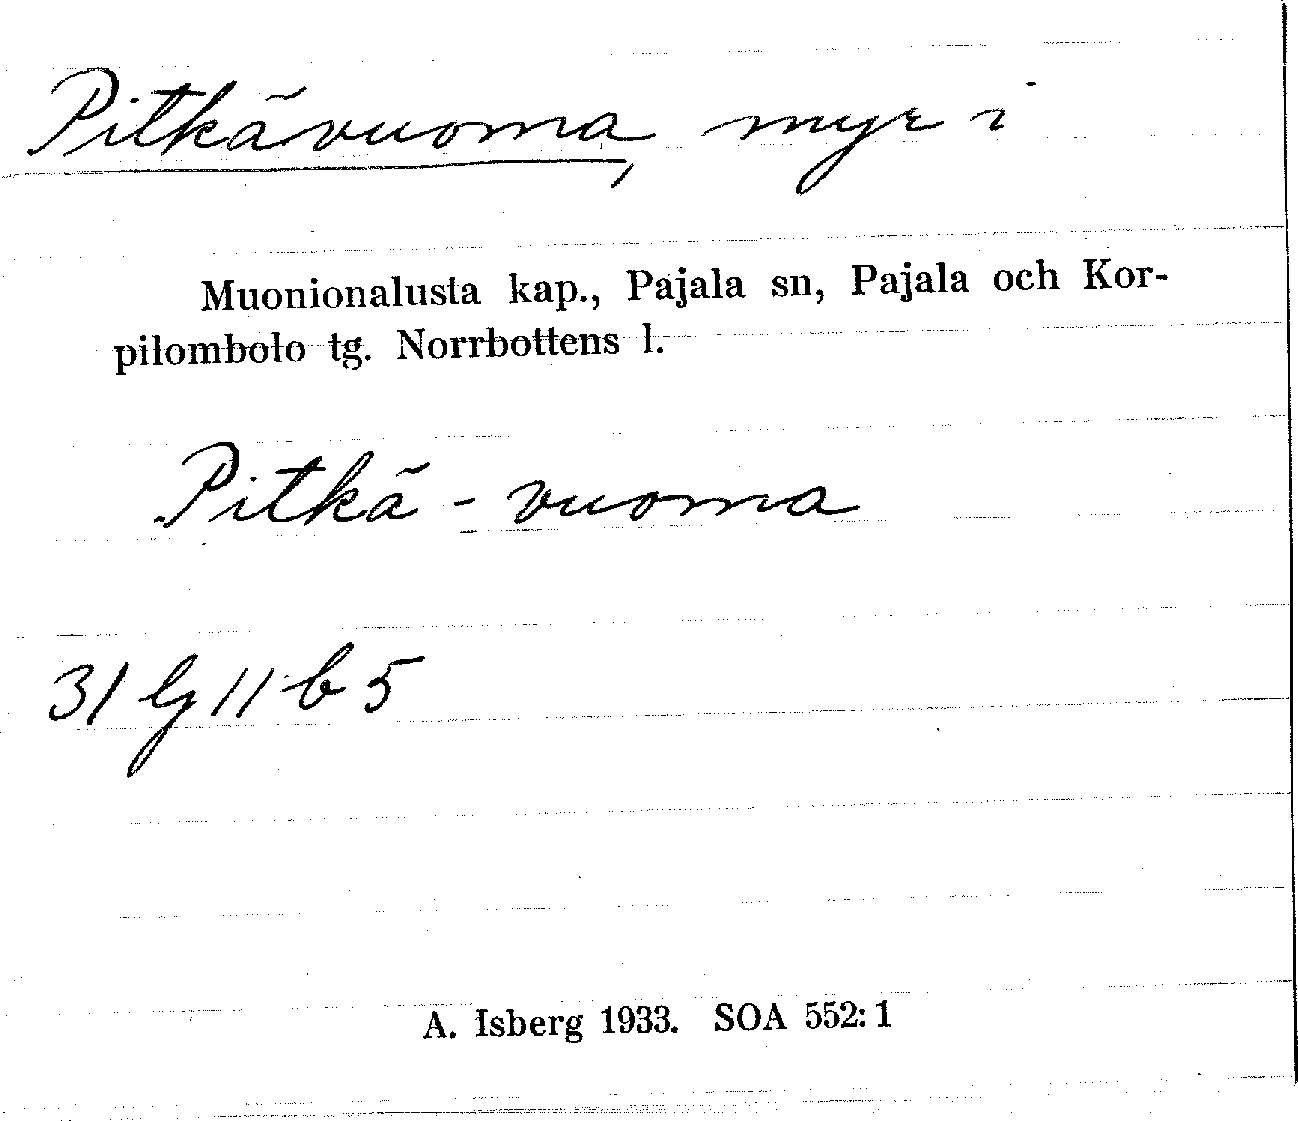 Pitkävuoma, myr i
Muonionalusta kap., Pajala sn, Pajala och Kor-
pilombolo tg. Norrbottens l.
Pitkä - vuoma
31 lj 11 b 5
A. Isberg 1933. SOA 552:1